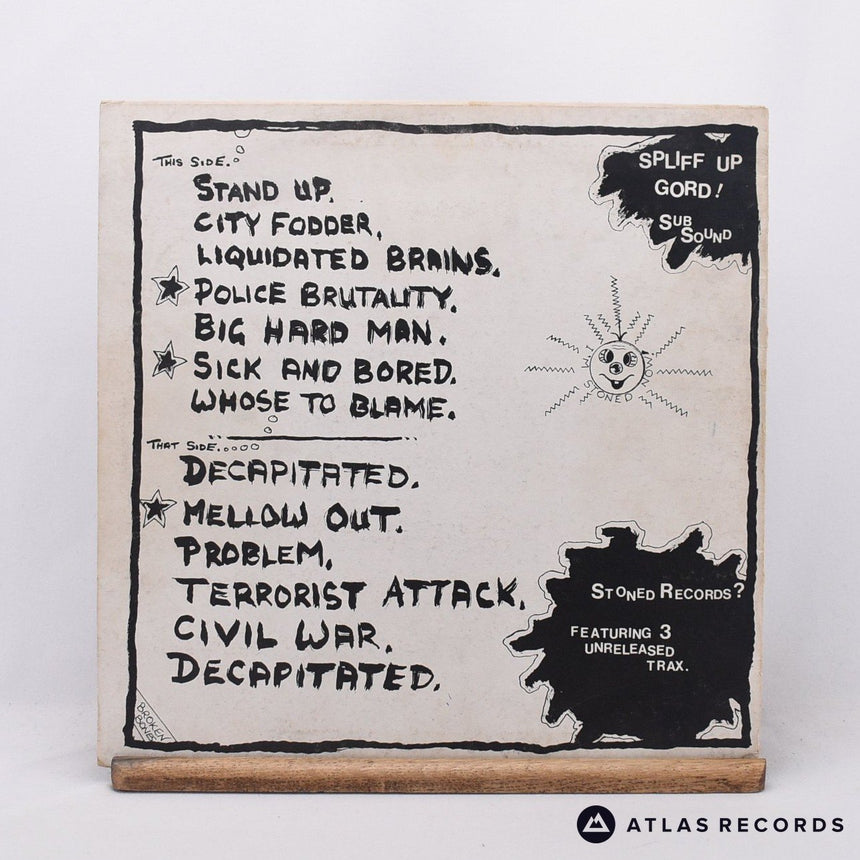 THIS SIDE.
STAND UP.
CITY FODDER.
LIQUIDATED BRAINS.
POLICE BRUTALITY.
BIG HARD MAN.
SICK AND BORED.
WHOSE TO BLAME.
THAT SIDE.....
DECAPITATED.
MELLOW OUT.
PROBLEM.
TERRORIST ATTACK.
CIVIL WAR.
DECAPITATED.
SPLIFF UP
GORD!
SUB
SOUND
STONED
STONED RECORDS?
FEATURING 3
UNRELEASED
TRAX.
BROKEN
BONES
ATLAS RECORDS